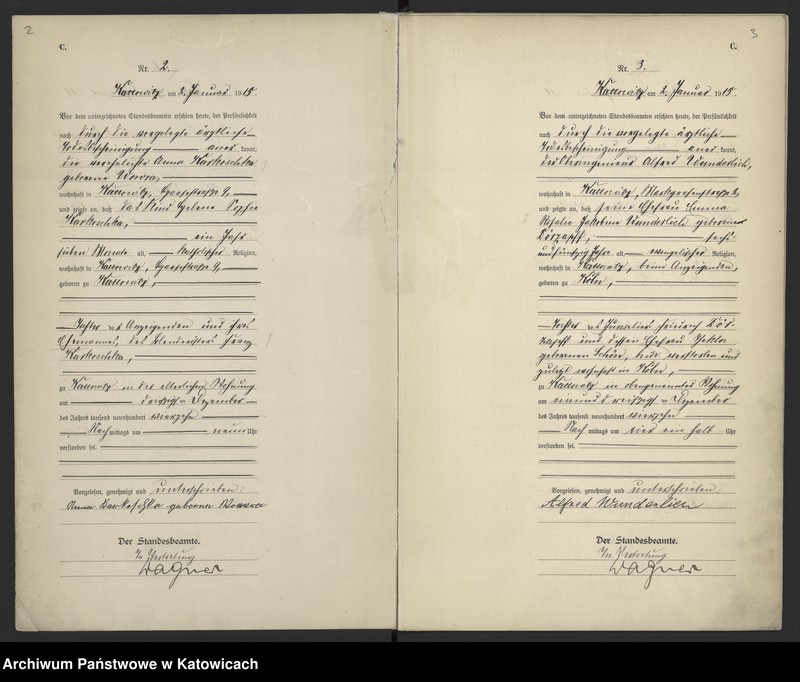 2
C.
Nr. 2.
Kattowitz am 2. Januar 1915.
Vor dem unterzeichneten Standesbeamten erschien heute, der Persönlichkeit
nach durch die vorgelegte ärztliche
Todesbescheinigung anerkannt,
die verehelichte Anna Karkoschka
geborene
wohnhaft in Kattowitz,
und zeigte an, daß das Kind Helene Sophie
Karkoschka,
ein Jahr
sieben Monate alt, katholischer Religion,
wohnhaft in Kattowitz,
geboren zu Kattowitz,
Tochter der Anzeigenden und ihres
Ehemannes, des Franz
Karkoschka,
zu Kattowitz in der elterlichen Wohnung
am Dezember
des Jahres tausend neunhundert vierzehn
Nachmittags um neun Uhr
verstorben sei.
Vorgelesen, genehmigt und unterschrieben:
Anna Karkoschka geborene
Der Standesbeamte.
In Vertretung
Wagner
3
C.
Nr. 3.
Kattowitz am 2. Januar 1915.
Vor dem unterzeichneten Standesbeamten erschien heute, der Persönlichkeit
nach durch die vorgelegte ärztliche
Todesbescheinigung anerkannt,
der Oberingenieur Alfred Wunderlich,
wohnhaft in Kattowitz,
und zeigte an, daß seine Ehefrau Emma
Wunderlich geborene
sechs-
undfünfzig Jahre alt, evangelischer Religion,
wohnhaft in Kattowitz, beim Anzeigenden,
geboren zu Köln,
Tochter des Juweliers Friedrich
und dessen Ehefrau
geborenen Schön, beide verstorben und
zuletzt wohnhaft in Köln,
zu Kattowitz in obengenannter Wohnung
am einunddreißigsten Dezember
des Jahres tausend neunhundert vierzehn
Nachmittags um vier ein halb Uhr
verstorben sei.
Vorgelesen, genehmigt und unterschrieben:
Alfred Wunderlich
Der Standesbeamte.
In Vertretung
Wagner
Archiwum Państwowe w Katowicach